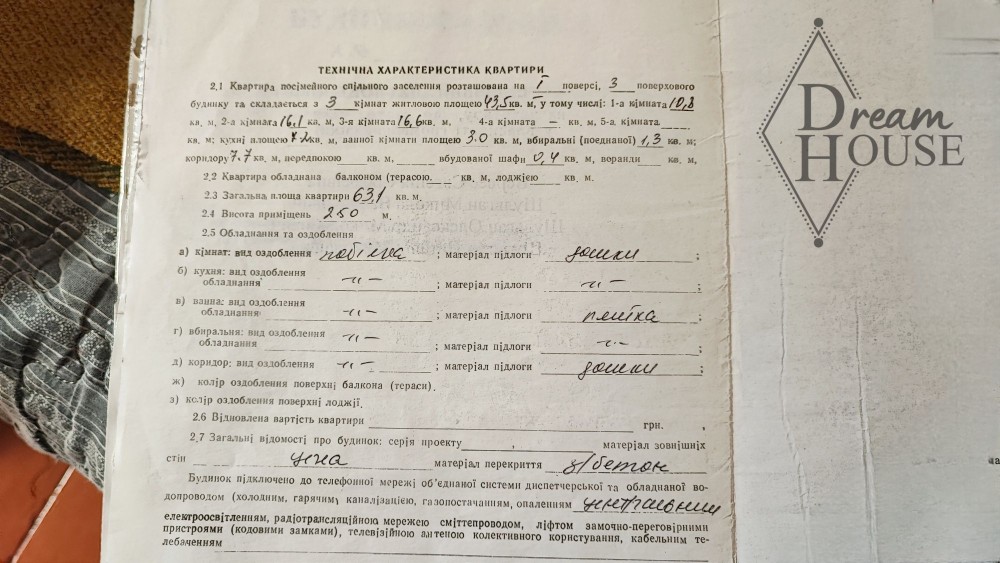 ТЕХНІЧНА ХАРАКТЕРИСТИКА КВАРТИРИ
2.1 Квартира посімейного спільного заселення розташована на І поверсі, 3 поверхового
будинку та складається з 3 кімнат житловою площею 43,5 кв. м, у тому числі: 1-а кімната 10,8
кв. м, 2-а кімната 16,1 кв. м, 3-я кімната 16,6 кв. м, 4-а кімната — кв. м, 5-а. кімната
кв. м; кухні площею 7.2 кв. м, ванної кімнати площею 3.0 кв. м, вбиральні (поєднаної) 1,3 кв. м;
коридору 7.7 кв. м, передпокою кв. м, вбудованої шафи 0,4 кв. м, веранди кв. м,
2.2 Квартира обладнана балконом (терасою. кв. м, лоджією кв. м.
2.3 Загальна площа квартири 63,1 кв. м.
2.4 Висота приміщень 250 м.
2.5 Обладнання та оздоблення
а) кімнат: вид оздоблення побілка ; матеріал підлоги дошки ;
б) кухня: вид оздоблення
обладнання -"- ; матеріал підлоги -"- ;
в) ванна: вид оздоблення
обладнання -"- ; матеріал підлоги плитка ;
г) вбиральня: вид оздоблення
обладнання -"- ; матеріал підлоги -"- ;
д) коридор: вид оздоблення -"- ; матеріал підлоги дошки ;
ж) колір оздоблення поверхні балкона (тераси).
з) колір оздоблення поверхні лоджії.
2.6 Відновлена вартість квартири грн.
2.7 Загальні відомості про будинок: серія проекту , матеріал зовнішніх
стін цегла матеріал перекриття з/бетон
Будинок підключено до телефонної мережі об'єднаної системи диспетчерської та обладнано во-
допроводом (холодним, гарячим) каналізацією, газопостачанням, опаленням центральним
електроосвітленням, радіотрансляційною мережею сміттєпроводом, ліфтом замочно-переговірними
пристроями (кодовими замками), телевізійною антеною колективного користування, кабельним те-
лебаченням
Dream
HOUSE